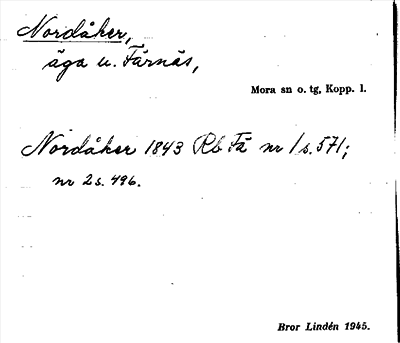 Nordåker,
äga u. Färnäs,
Mora sn o. tg, Kopp. l.
Nordåker 1843 Rb Fä nr 1 s. 571;
nr 2 s. 496.
Bror Lindén 1945.